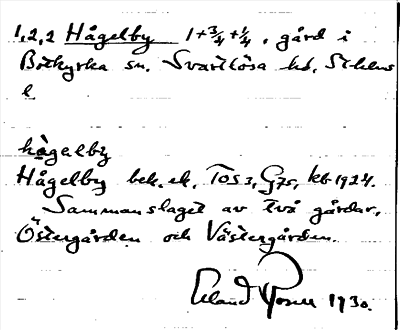 1,2,2 Hågelby 1+3/4+1/4, gård i
Botkyrka sn. Svartlösa hd, Sthlms
l
hågelby
Hågelby bek. el. Tos3, G75, kb 1924.
Sammanslaget av två gårdar,
Östergården och Västergården.
Erland Rosell 1930.